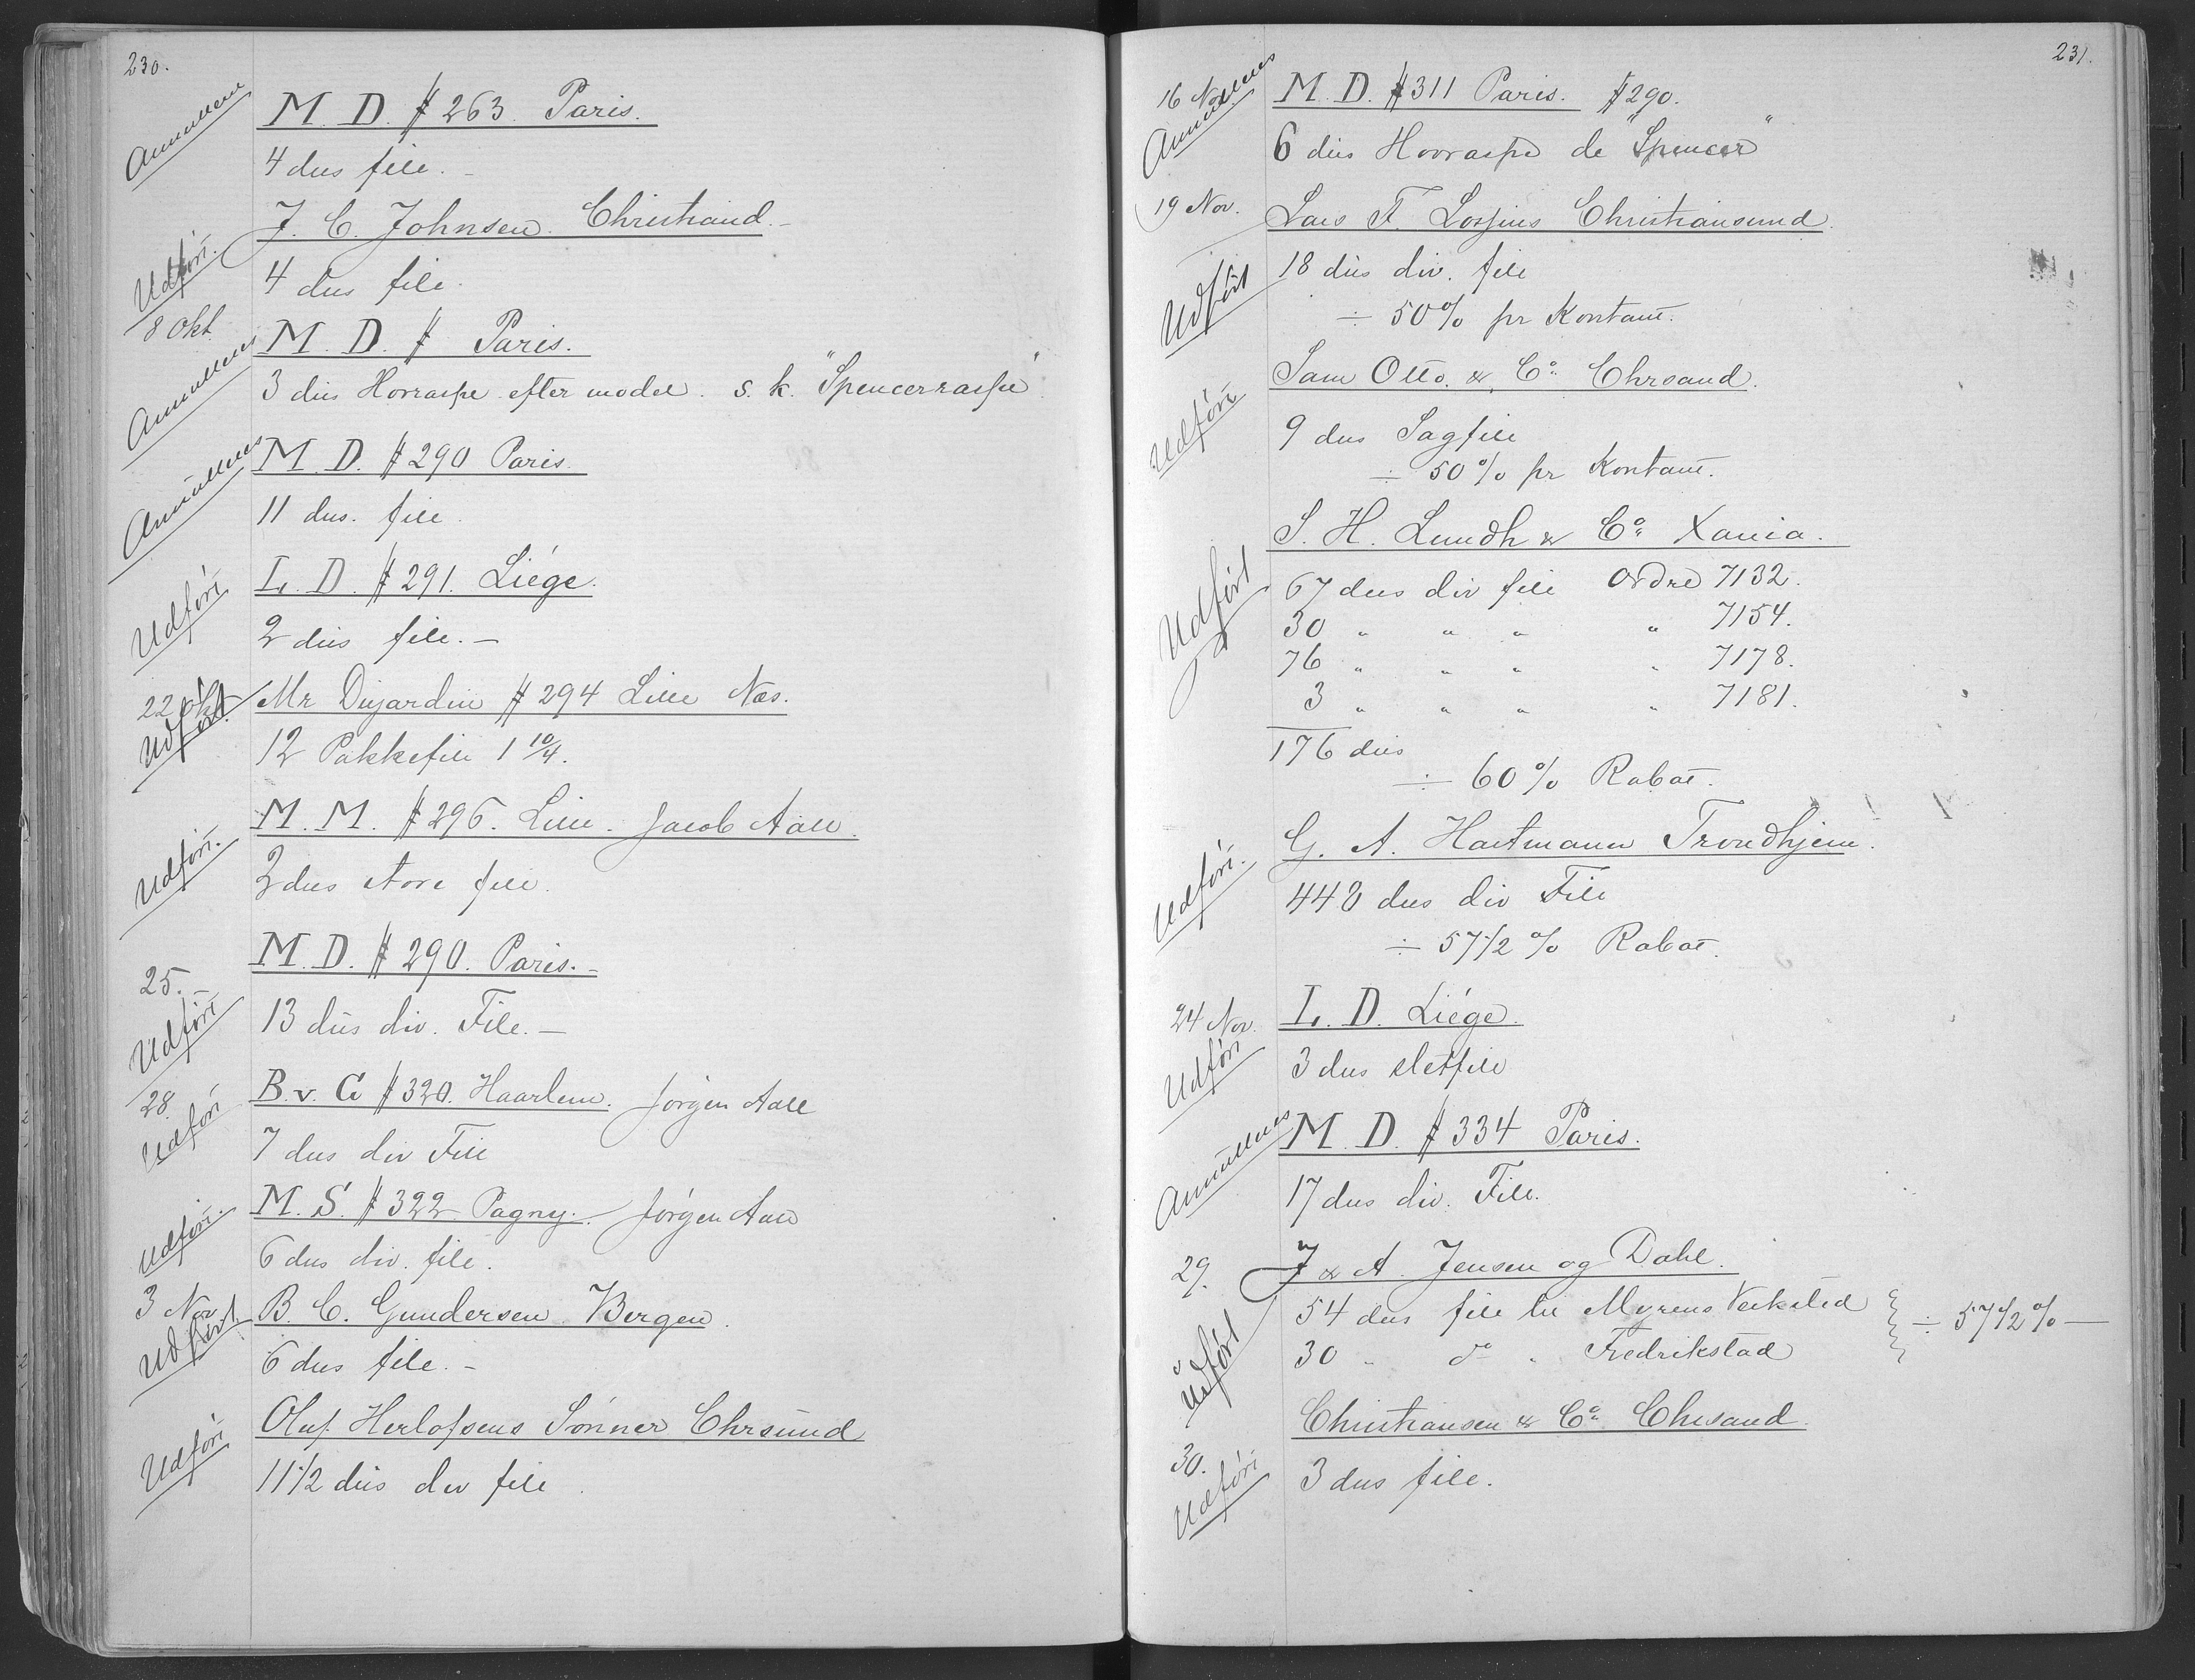 230.
Annulleres M. D. # 263. Paris.
4 dus file. –
J. C. Johnsen. Christiand. –
Udført. 4 dus file.
8 Okt.
M. D. # Paris.
Annulleres 3 dus Hovraspe efter model. s. k. "Spencerraspe"
M. D. # 290 Paris.
Annulleres 11 dus. file.
L. D. # 291. Liége.
Udført 2 dus file. –
22 Okt. Mr Dujardin # 294 Lille Næs.
Udført 12 Pakkefile 1 10/4.
M. M. # 296. Lille. Jacob Aall.
Udført. 2 dus store file.
M. D. # 290. Paris. –
25. –
Udført 13 dus div. File. –
28. B. v. G # 320. Haarlem. Jørgen Aall
Udført 7 dus div File
M. S. # 322 Pagny. Jørgen Aall
Udført. 6 dus div. file.
3 Nov. B. C. Gundersen Bergen.
Udført. 6 dus file. –
Oluf Herlofsens Sønner Chrsund
Udført 11 1/2 dus div file
231.
16 Nov. M. D. # 311 Paris. # 290.
Annulleres 6 dus Hovraspe de "Spencer"
19 Nov. Lars F. Lossius Christiansund.
18 dus div. file
Udført ÷ 50% pr Kontant.
Sam Otto. & Co. Chrsand.
Udført 9 dus Sagfile
÷ 50% pr Kontant.
S. H. Lundh & Co. Xania.
Udført 67 dus div file Ordre 7132.
30 " " " " 7154.
76 " " " " 7178.
3 " " " " 7181.
176 dus
÷ 60% Rabat.
G. A. Hartmann Trondhjem.
Udført. 448 dus div File
÷ 57 1/2 % Rabat.
24 Nov. L. D. Liége.
Udført 3 dus sletfile
M. D. # 334 Paris.
Annulleres 17 dus div. File.
29. J & A. Jensen og Dahl.
54 dus file til Myrens Verksted
÷ 57 1/2 % –
Udført 30 " do " Fredrikstad
Christiansen & Co. Chrsand.
30.
Udført 3 dus file.